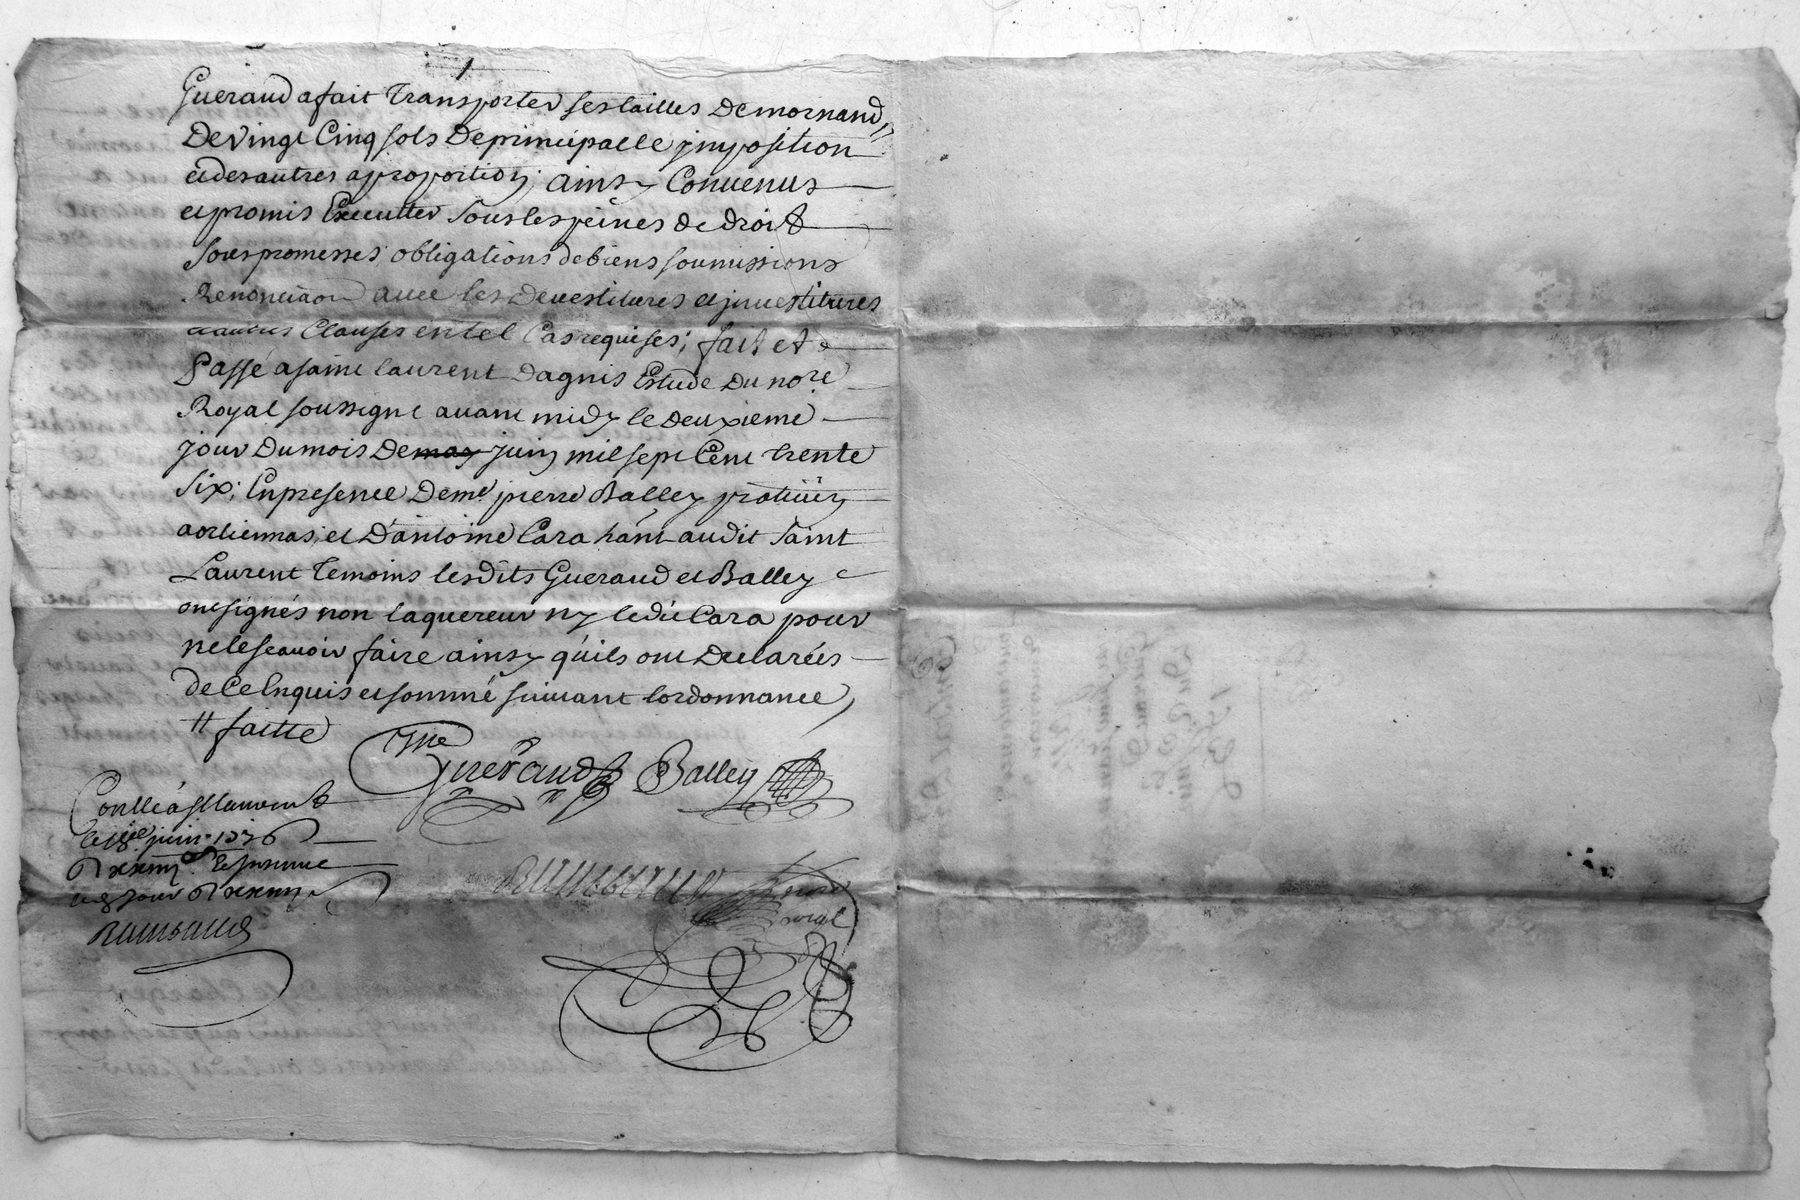 Gueraud a fait transporter ses tailles de mornand,
de vingt cinq sols de principalle jmposition
et des autres a proportion; ainsy convenus
et promis executter sous les peines de droit
sous promesses; obligations de biens soumissions
Renonciaon avec les devestitures et jnvestitures
et autres clauses en tel cas requises; fait et
Passé a saint laurent dagnis Estude du nore
Royal soussigné avant midy le deuxieme
jour du mois de may juin mil sept cent trente
six; En presence de me pierre Balley praticien
a ortiennas; et d'antoine Cara hant audit saint
Laurent temoins lesdits Gueraud et Balley
ont signés non laquereur ny ledit Cara pour
ne le scavoir faire ainsy quils ont declarées
de ce Enquis et sommé suivant lordonnance
// faitte
Gueraud Balley
Conllé a St laurent
le juin 1736
R
jour R